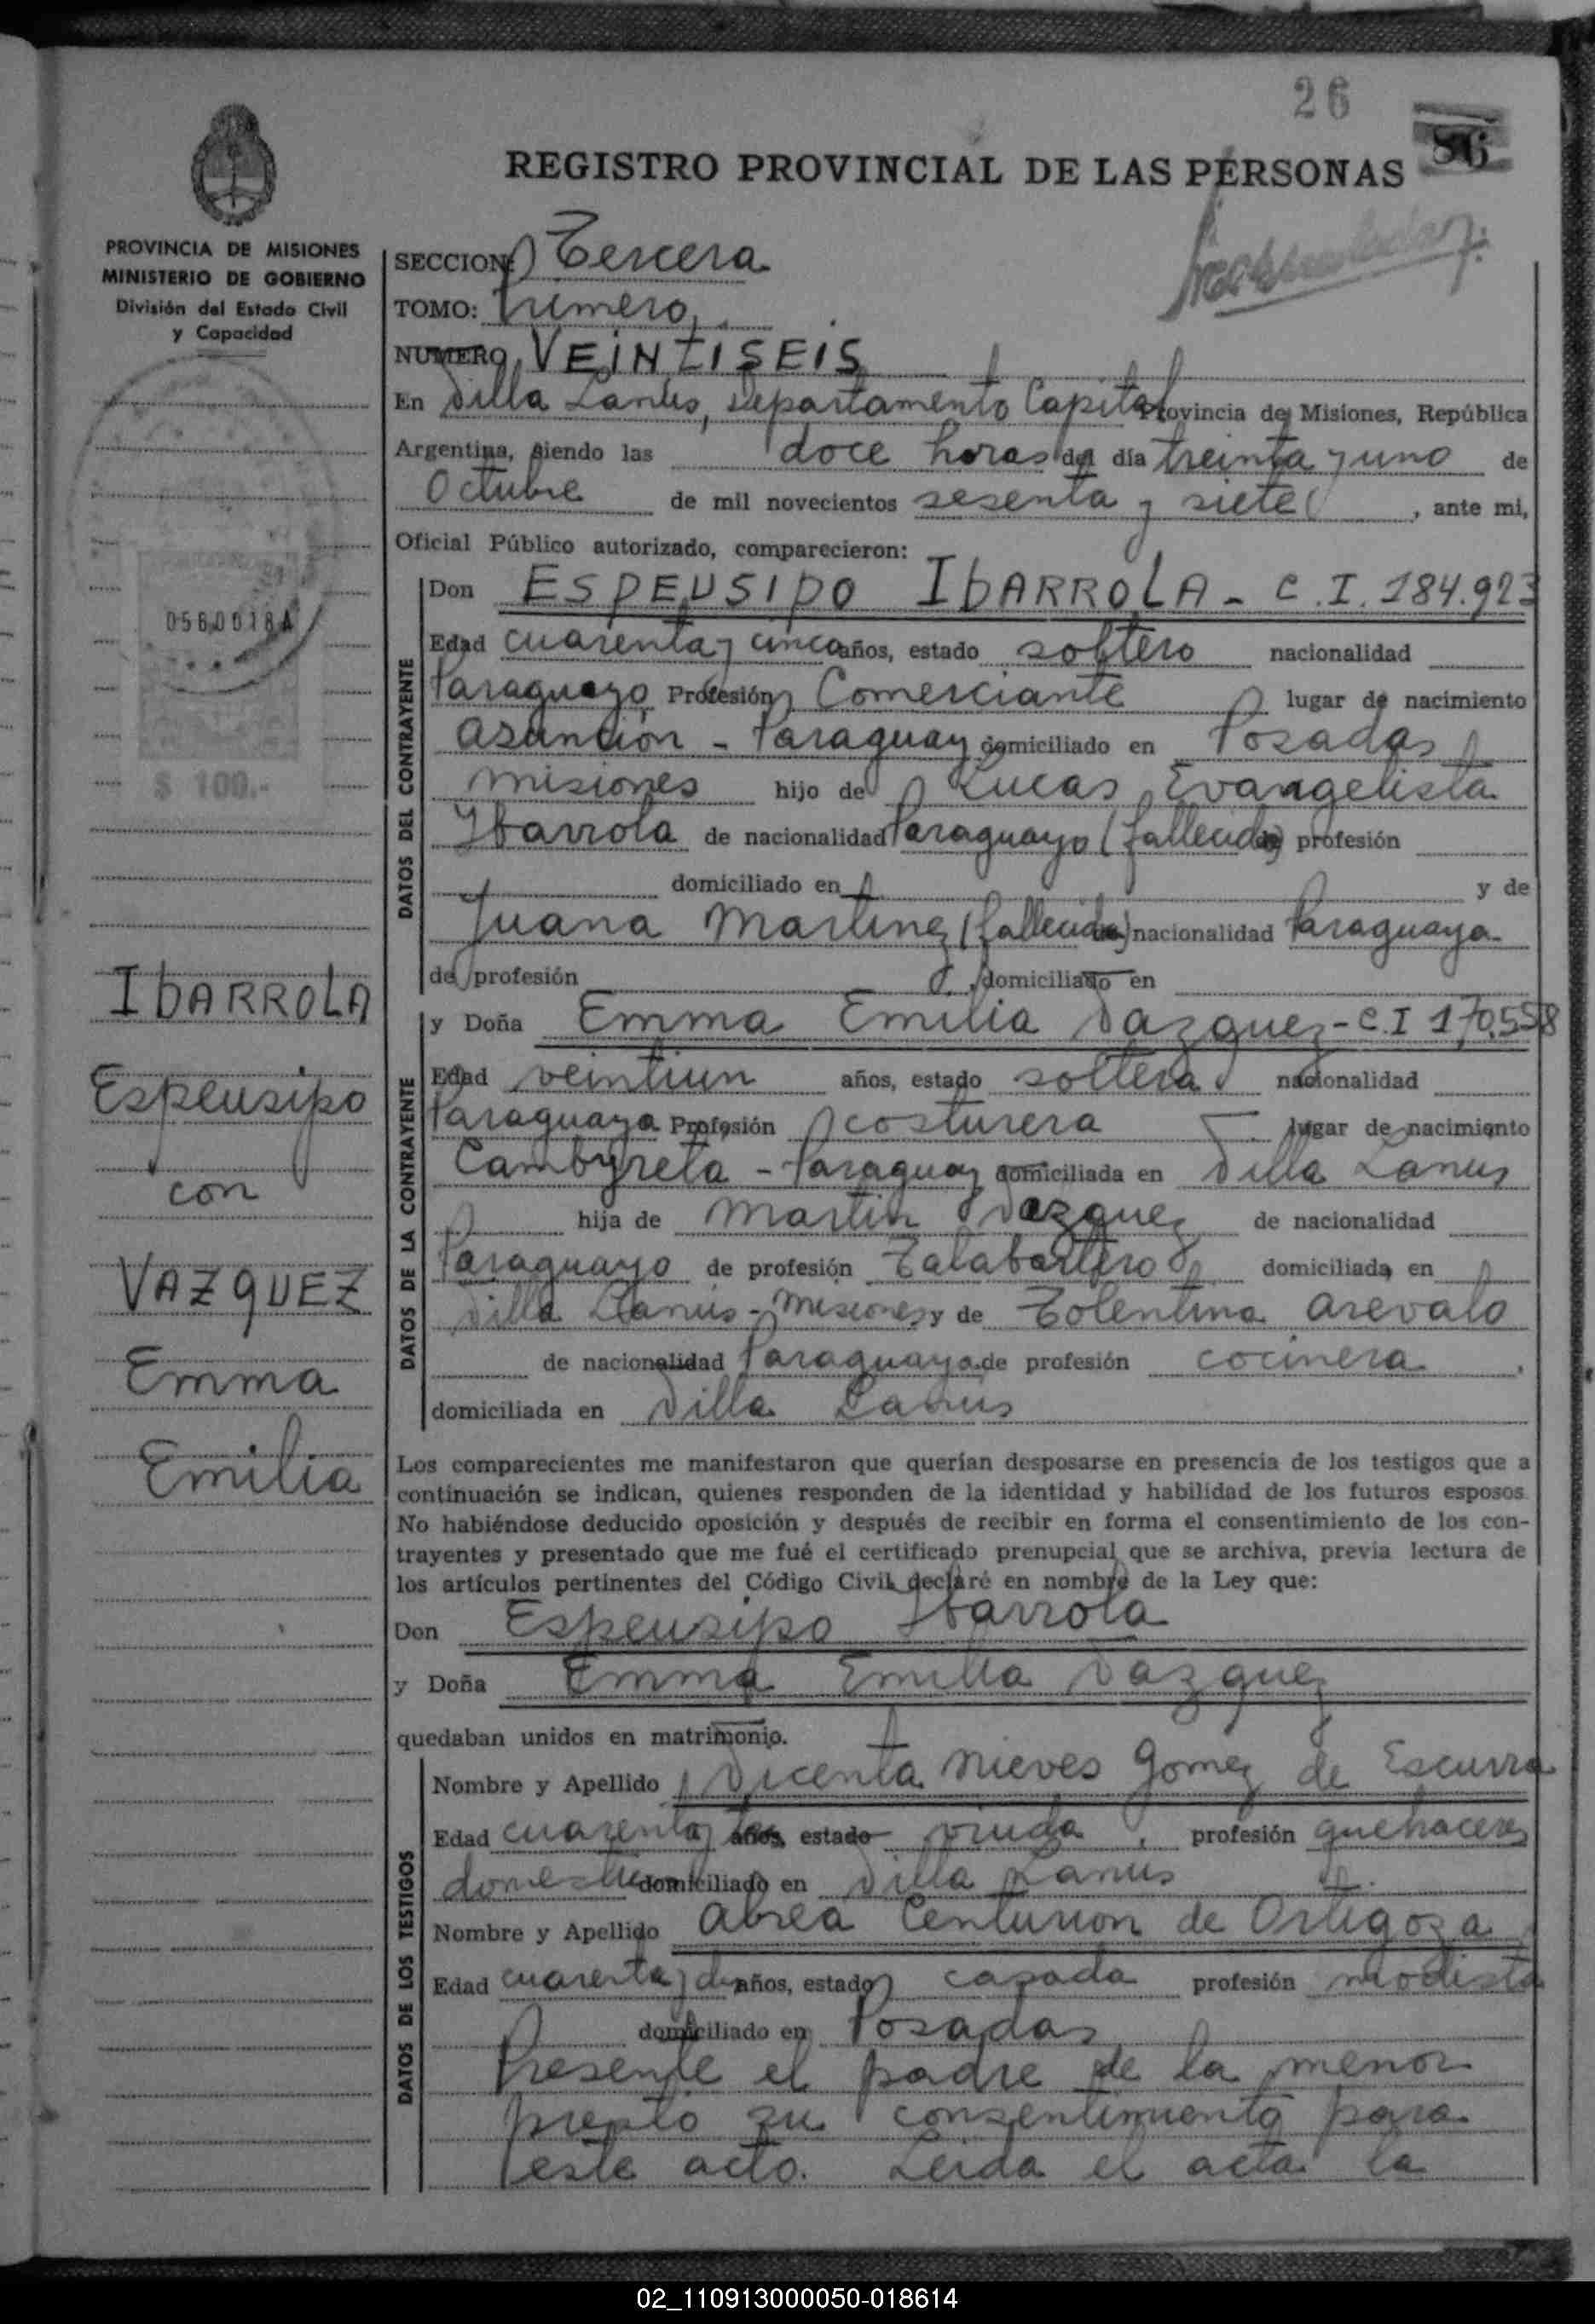 26
86
REGISTRO PROVINCIAL DE LAS PERSONAS
PROVINCIA DE MISIONES
MINISTERIO DE GOBIERNO
División del Estado Civil
y Capacidad
0560018A
$ 100.-
IbARROLA
Espeusipo
con
VAZQUEZ
Emma
Emilia
SECCION: Tercera
TOMO: Primero
NUMERO VEINTISEIS
En Villa Lanús, departamento Capital Provincia de Misiones, República
Argentina, siendo las doce horas del día treinta y uno de
Octubre de mil novecientos sesenta y siete, ante mi,
Oficial Público autorizado, comparecieron:
DATOS DEL CONTRAYENTE
Don ESPEUSIPO IbARROLA - C.I. 184.923
Edad cuarenta y cinco años, estado soltero nacionalidad
Paraguayo Profesión Comerciante lugar de nacimiento
Asunción - Paraguay domiciliado en Posadas
Misiones hijo de Lucas Evangelista
Ibarrola de nacionalidad Paraguayo (fallecido) profesión
domiciliado en y de
Juana Martinez (fallecida) nacionalidad Paraguaya
de profesión domiciliado en
DATOS DE LA CONTRAYENTE
y Doña Emma Emilia Vazquez - C.I 170.558
Edad veintiun años, estado soltera nacionalidad
Paraguaya Profesión costurera lugar de nacimiento
Cambyreta - Paraguay domiciliada en Villa Lanus
hija de Martin Vazquez de nacionalidad
Paraguayo de profesión Talabartero domiciliada en
Villa Lanús - Misiones y de Tolentina Arevalo
de nacionalidad Paraguaya de profesión cocinera,
domiciliada en Villa Lanus
Los comparecientes me manifestaron que querían desposarse en presencia de los testigos que a
continuación se indican, quienes responden de la identidad y habilidad de los futuros esposos.
No habiéndose deducido oposición y después de recibir en forma el consentimiento de los con-
trayentes y presentado que me fué el certificado prenupcial que se archiva, previa lectura de
los artículos pertinentes del Código Civil declaré en nombre de la Ley que:
Don Espeusipo Ibarrola
y Doña Emma Emilia Vazquez
quedaban unidos en matrimonio.
DATOS DE LOS TESTIGOS
Nombre y Apellido Vicenta Nieves Gomez de Escurra
Edad cuarenta y años, estado viuda, profesión quehaceres
domesticos domiciliado en Villa Lanus
Nombre y Apellido Abrea Centurion de Ortigoza
Edad cuarenta y dos años, estado casada profesión modista
domiciliado en Posadas
Presente el padre de la menor
presto su consentimiento para
este acto. Leida el acta la
02_110913000050-018614